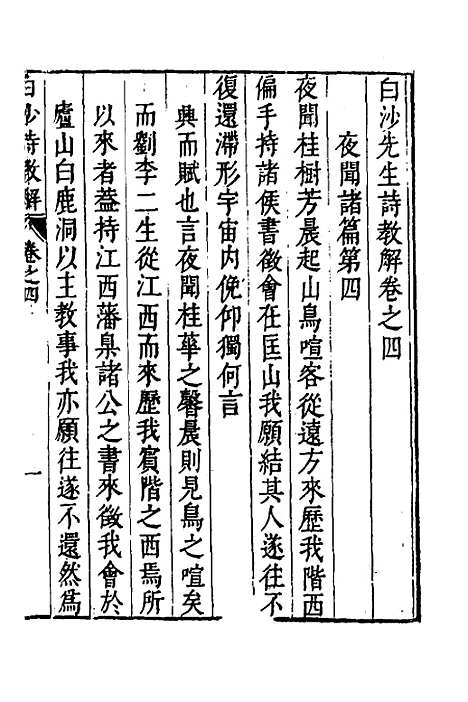 白沙先生詩教解卷之四
夜聞諸篇第四
夜聞桂樹芳晨起山鳥喧客從遠方來歷我階西
偏手持諸侯書徵會在匡山我願結其人遂往不
復還滯形宇宙內俛仰獨何言
興而賦也言夜聞桂華之馨晨則見鳥之喧矣
而劉李二生從江西而來歷我賓階之西焉所
以來者葢持江西藩臬諸公之書來徵我會於
廬山白鹿洞以主教事我亦願往遂不還然為
白沙詩教解
卷之四
一